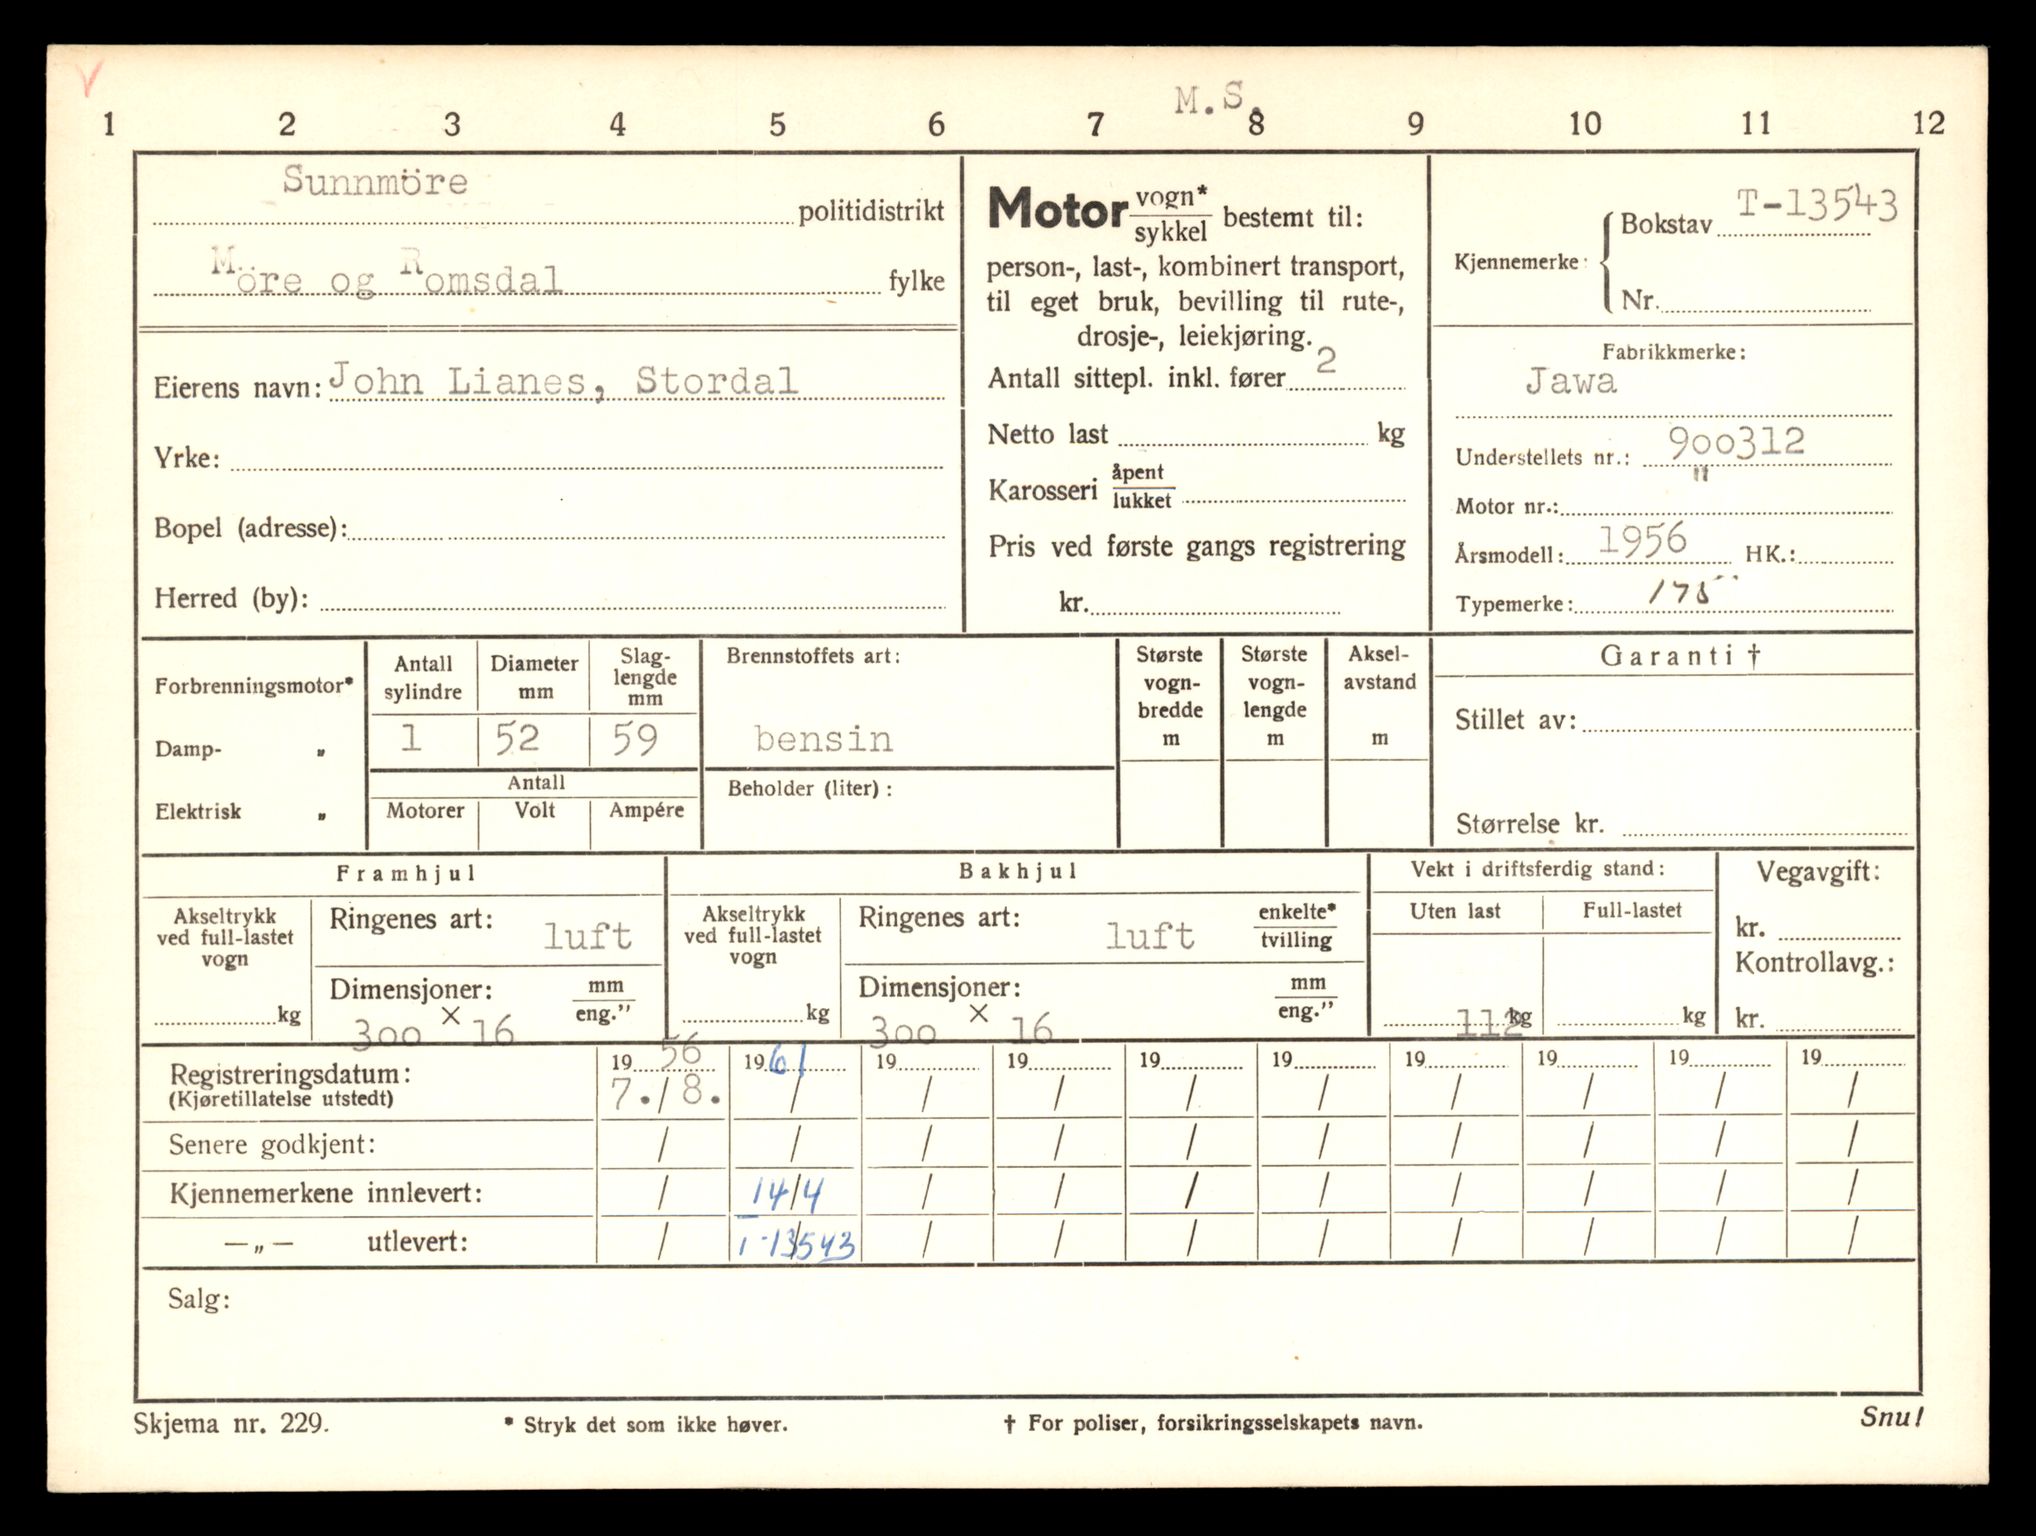 M.S.
1 2 3 4 5 6 7 8 9 10 11 12
Sunnmöre politidistrikt
Möre og Romsdal fylke
Eierens navn: John Lianes, Stordal
Yrke:
Bopel (adresse):
Herred (by):
Motor vogn* / sykkel bestemt til:
person-, last-, kombinert transport,
til eget bruk, bevilling til rute-,
drosje-, leiekjøring.
Antall sittepl. inkl. fører 2
Netto last kg
Karosseri åpent / lukket
Pris ved første gangs registrering
kr.
Kjennemerke: Bokstav T-13543
Nr.
Fabrikkmerke:
Jawa
Understellets nr.: 900312
Motor nr.: "
Årsmodell: 1956 HK.:
Typemerke: 175
Forbrenningsmotor*
Damp- „
Elektrisk „
Antall sylindre
Diameter mm
Slag-
lengde
mm
1 52 59
Antall
Motorer Volt Ampére
Brennstoffets art:
bensin
Beholder (liter) :
Største
vogn-
bredde
m
Største
vogn-
lengde
m
Aksel-
avstand
m
Garanti †
Stillet av:
Størrelse kr.
Framhjul
Akseltrykk
ved full-lastet
vogn
kg
Ringenes art: luft
Dimensjoner: mm / eng.”
300 × 16
Bakhjul
Akseltrykk
ved full-lastet
vogn
kg
Ringenes art: luft enkelte* / tvilling
Dimensjoner: mm / eng.”
300 × 16
Vekt i driftsferdig stand:
Uten last Full-lastet
112 kg kg
Vegavgift:
kr.
Kontrollavg.:
kr.
Registreringsdatum: 19 56 19 61 19 19 19 19 19 19 19 19
(Kjøretillatelse utstedt) 7./8. / / / / / / / / /
Senere godkjent: / / / / / / / / / /
Kjennemerkene innlevert: / 14/4 / / / / / / / /
—„— utlevert: / T-13543 / / / / / / / /
Salg:
Skjema nr. 229. * Stryk det som ikke høver. † For poliser, forsikringsselskapets navn. Snu!